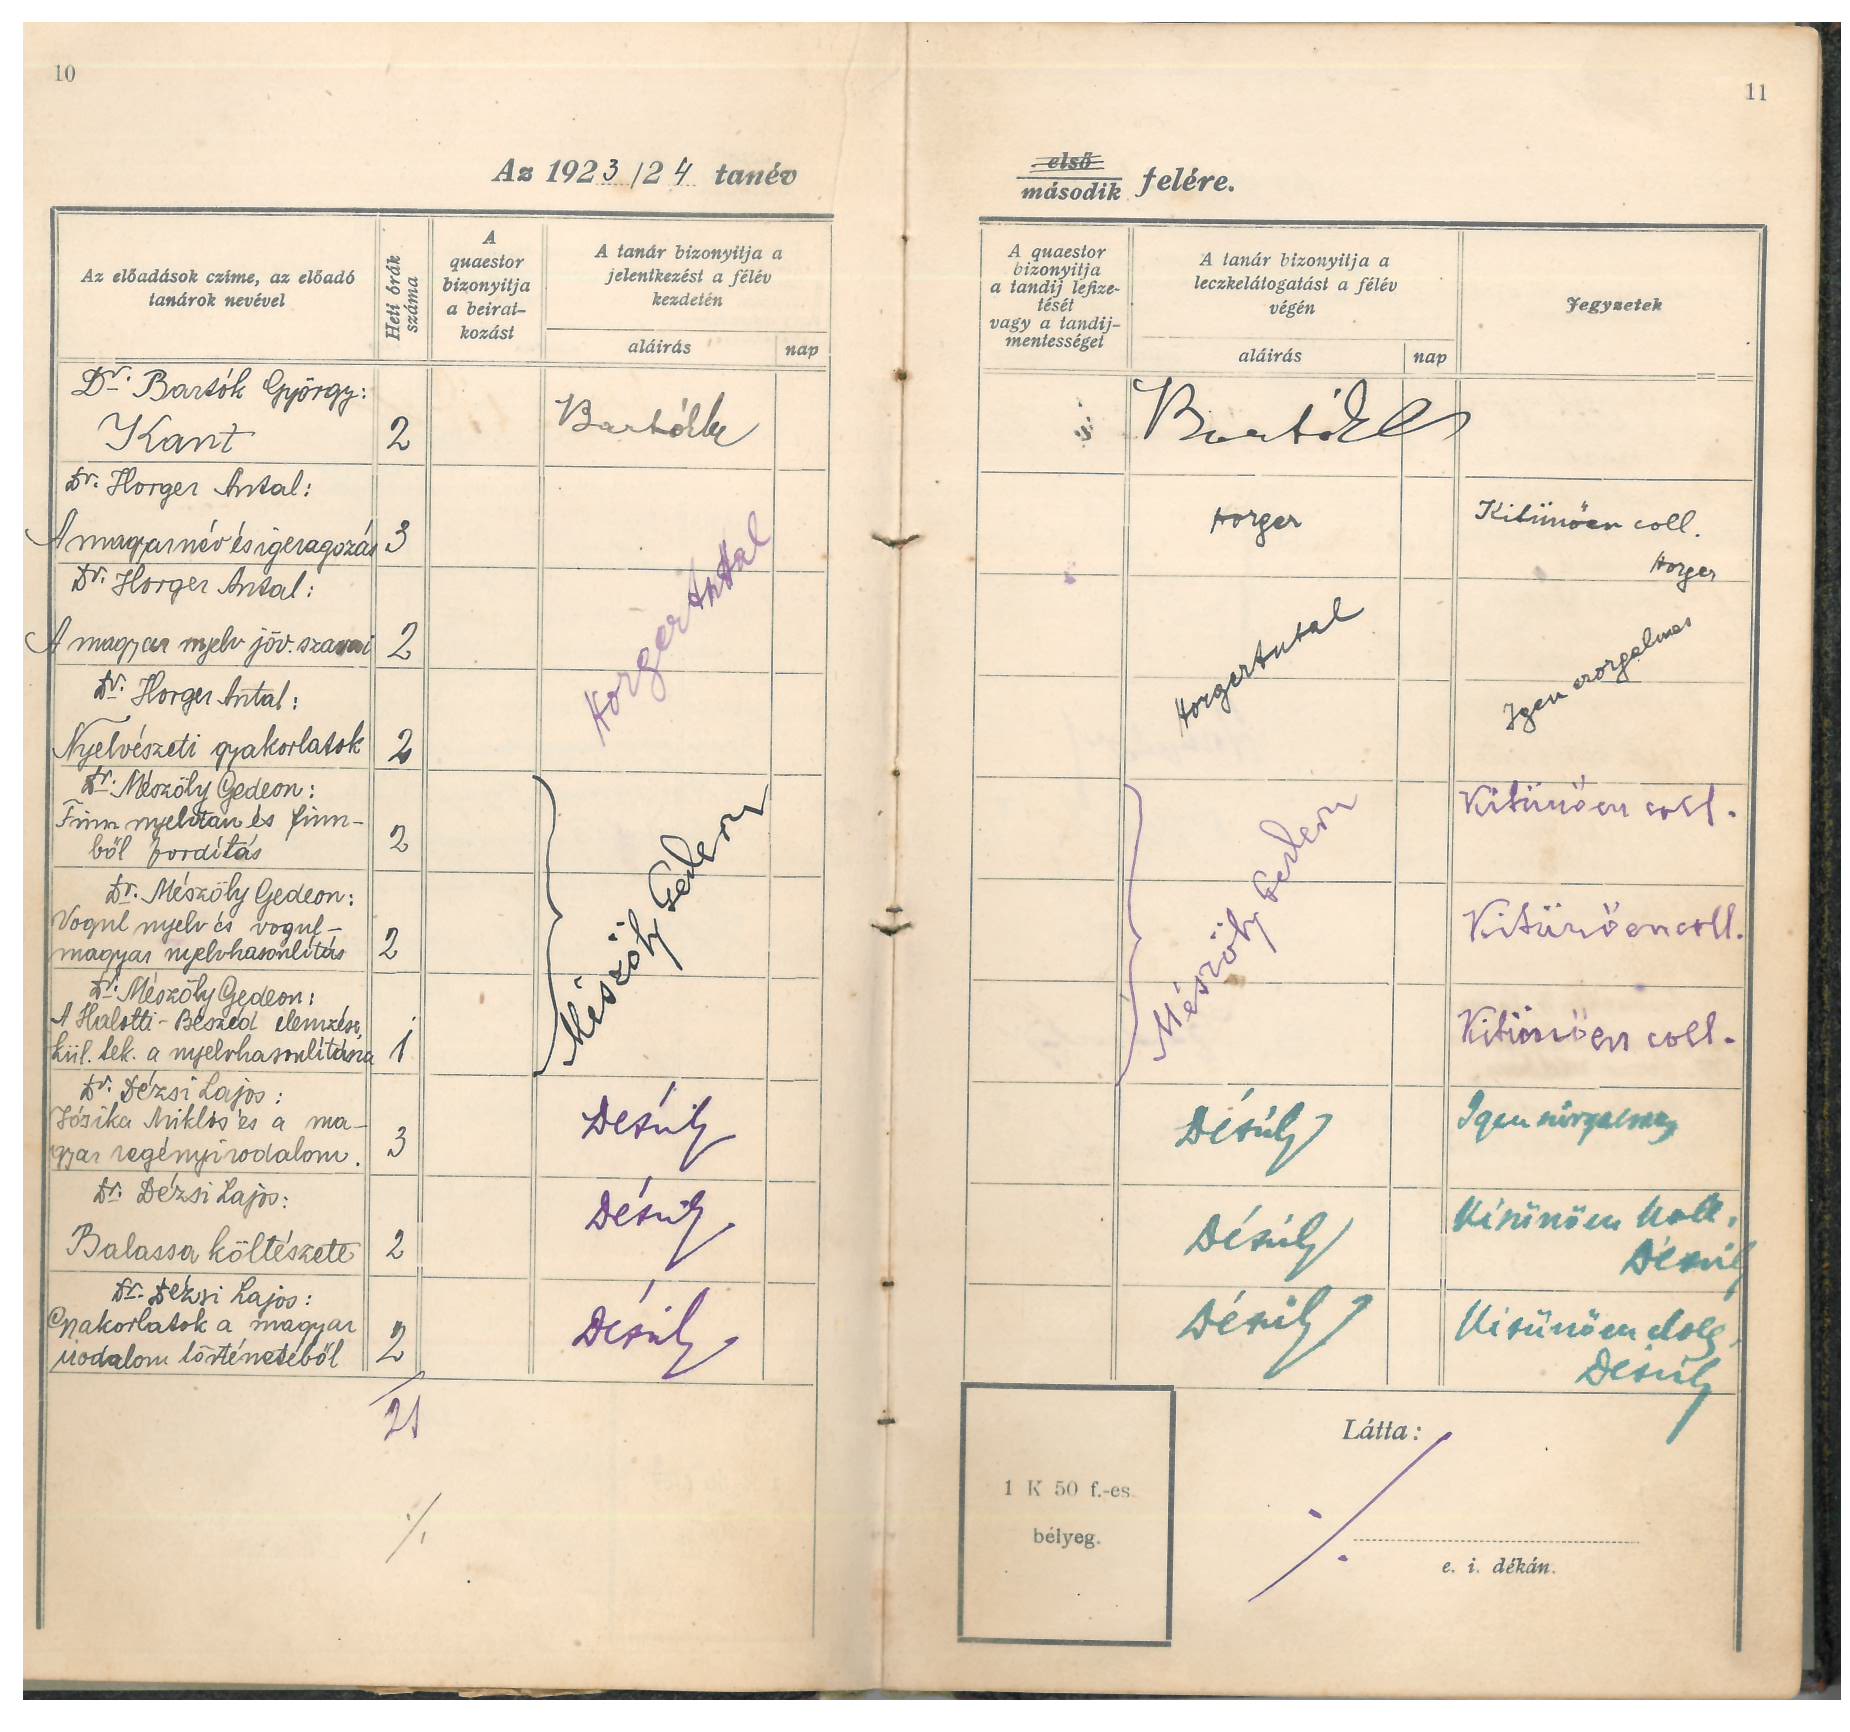 10
Az 1923/24 tanév
Az előadások czíme, az előadó
tanárok nevével
Heti órák
száma
A
quaestor
bizonyitja
a beirat-
kozást
A tanár bizonyitja a
jelentkezést a félév
kezdetén
aláirás
nap
Dr. Bartók György:
Kant
2
Dr. Horger Antal:
A magyar név és igeragozás
3
Dr. Horger Antal:
A magyar nyelv jöv. szavai
2
Horger Antal
Dr. Horger Antal:
Nyelvészeti gyakorlatok
2
Dr. Mészöly Gedeon:
Finn nyelvtan és finn-
ből fordítás
2
Dr. Mészöly Gedeon:
Vogul nyelv és vogul-
magyar nyelvhasonlítás
2
Mészöly Gedeon
Dr. Mészöly Gedeon:
A Halotti-Beszéd elemzése,
kül. tek. a nyelvhasonlításra
1
Dr. Dézsi Lajos:
Jósika Miklós és a ma-
gyar regényirodalom.
3
Dr. Dézsi Lajos:
Balassa költészete
2
Dr. Dézsi Lajos:
Gyakorlatok a magyar
irodalom történetéből
2
21
11
első
második felére.
A quaestor
bizonyitja
a tandij lefize-
tését
vagy a tandij-
mentességet
A tanár bizonyitja a
leczkelátogatást a félév
végén
aláirás
nap
Jegyzetek
Horger
Kitünően coll.
Horger
Horger Antal
Igen szorgalmas
Kitünően coll.
Mészöly Gedeon
Kitünően coll.
Kitünően coll.
Igen szorgalmas
Kitünően koll.
Kitünően
Látta:
1 K 50 f.-es
bélyeg.
e. i. dékán.